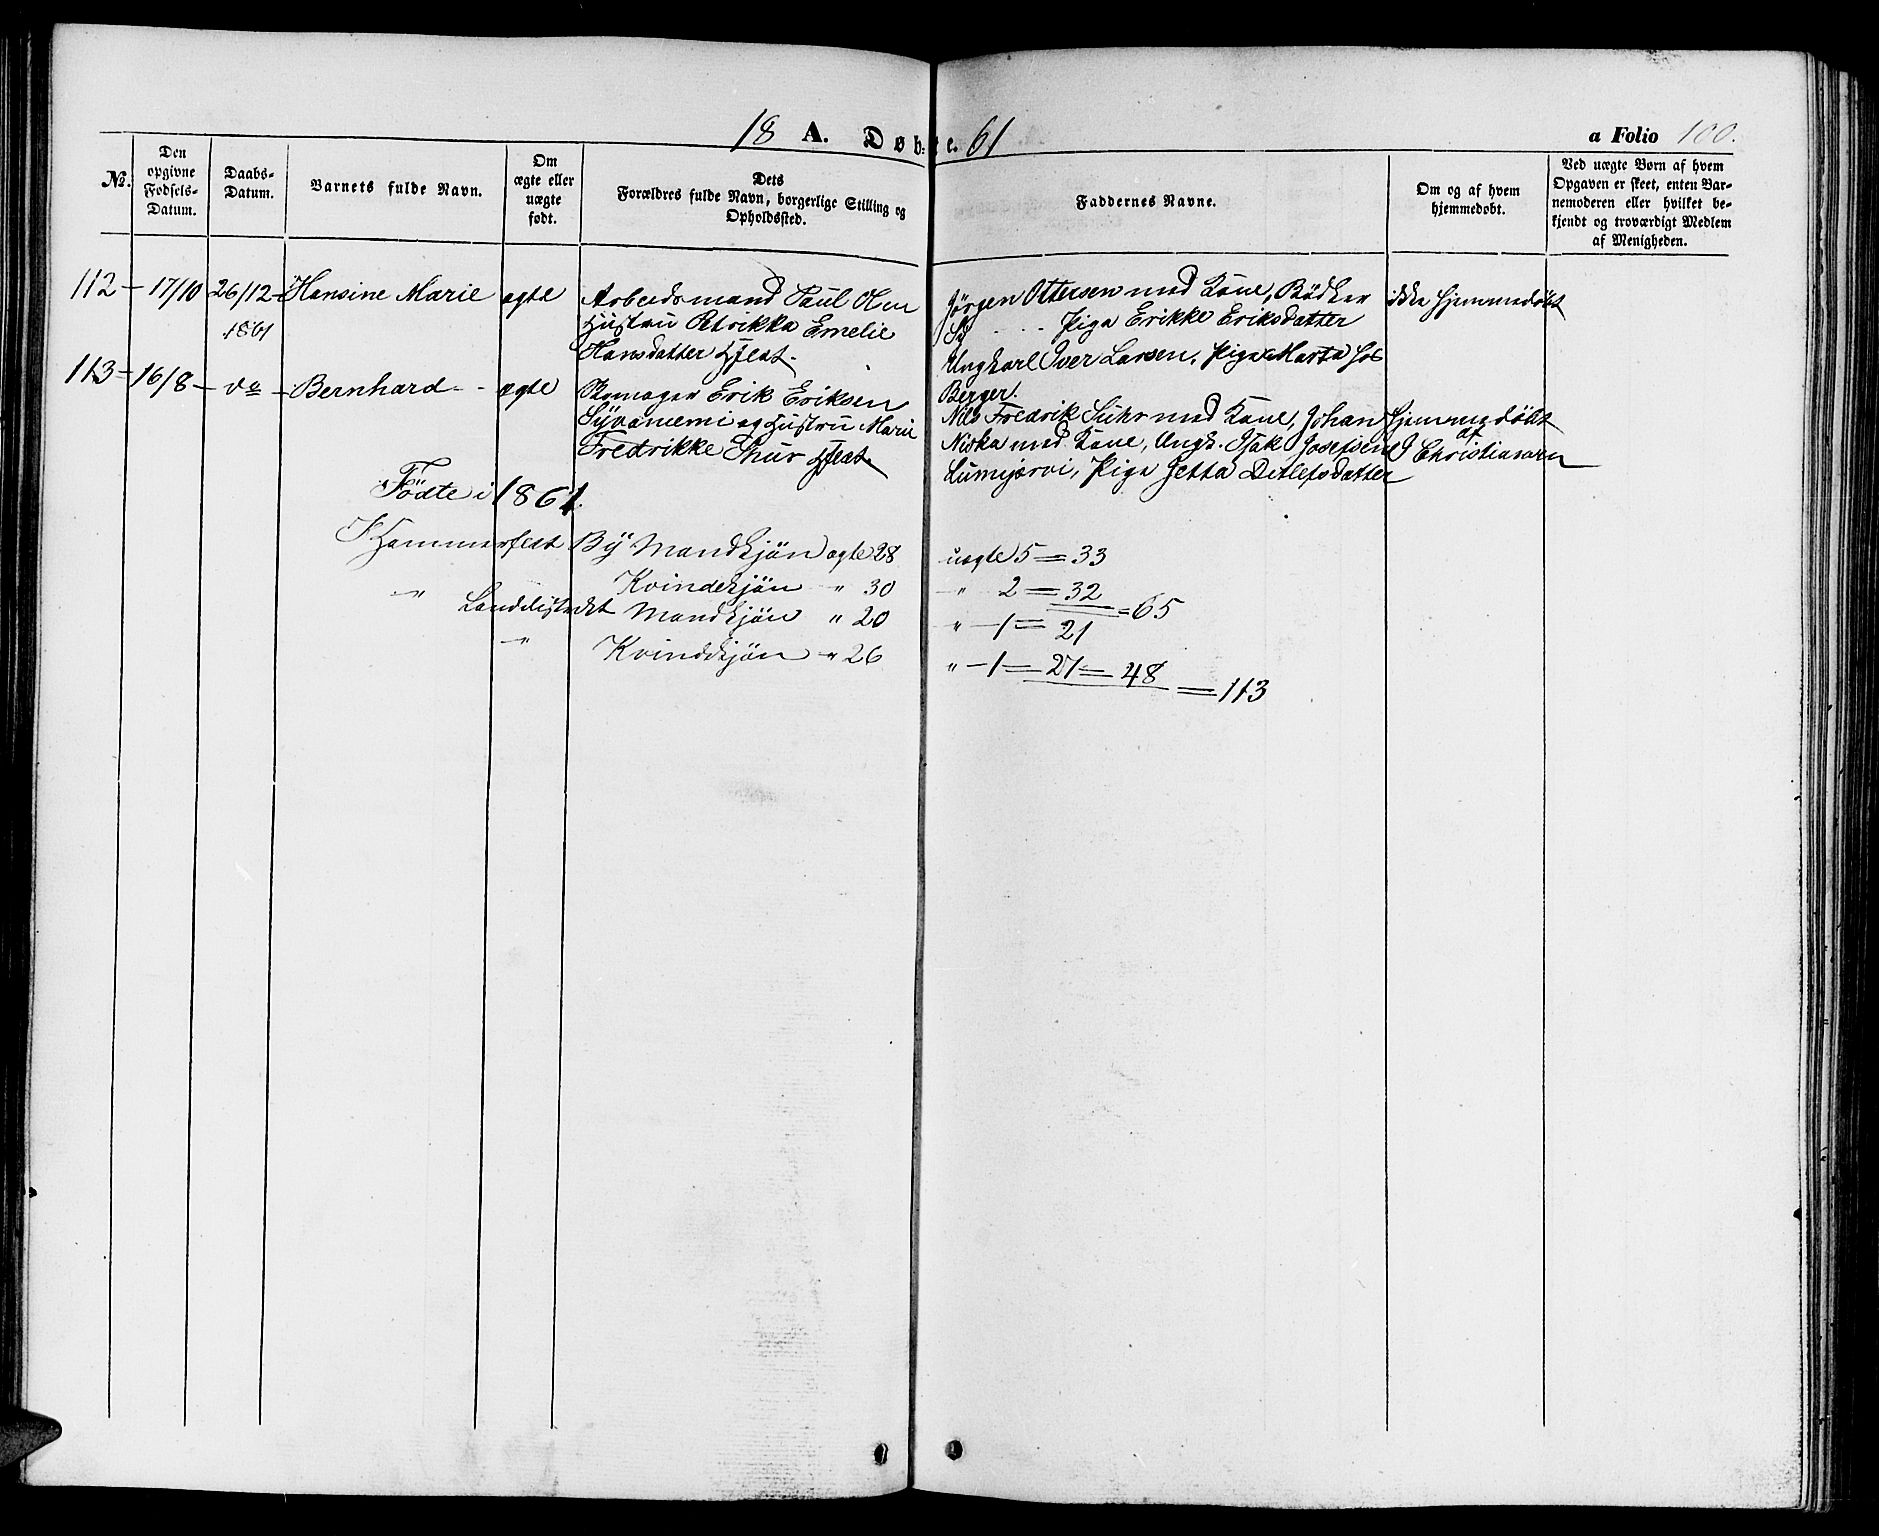 18 A. Døbte. 61
a Folio 100.
No. Den opgivne Fødsels-Datum. Daabs-Datum. Barnets fulde Navn. Om ægte eller uægte født. Dets Forældres fulde Navn, borgerlige Stilling og Opholdssted. Faddernes Navne. Om og af hvem hjemmedøbt. Ved uægte Børn af hvem Opgaven er skeet, enten Barnemoderen eller hvilket bekjendt og troværdigt Medlem af Menigheden.
112 – 17/10 26/12 – Hansine Marie ægte Arbeidsmand Paul Olsen Jørgen Ottersen med Kone, Bødker ikke hjemmedøbt
1861 Hustru Petrikka Emelie Piga Erikke Eriksdatter
Hansdatter Hfest. Ungkarl Iver Larsen, Piga Marta
Berger.
113 – 16/8 – do – Bernhard – ægte Skomager Erik Eriksen Nils Fredrik Suhr med Kone, Johan hjemmedøbt
og Hustru Marie Niska med Kone, Ungk. Isak Josefsen af J Christiansen
Fredrikke Hfest. Lumijærvi, Piga Jetta Detlefsdatter
Födte i 1861.
I Hammerfest By Mandkjön ægte 28 uægte 5 = 33
" Kvindekjön " 30 " 2 = 32 = 65
Landdistrikt Mandkjön " 20 " – 1 = 21
" Kvindekjön " 26 " – 1 = 27 = 48
= 113